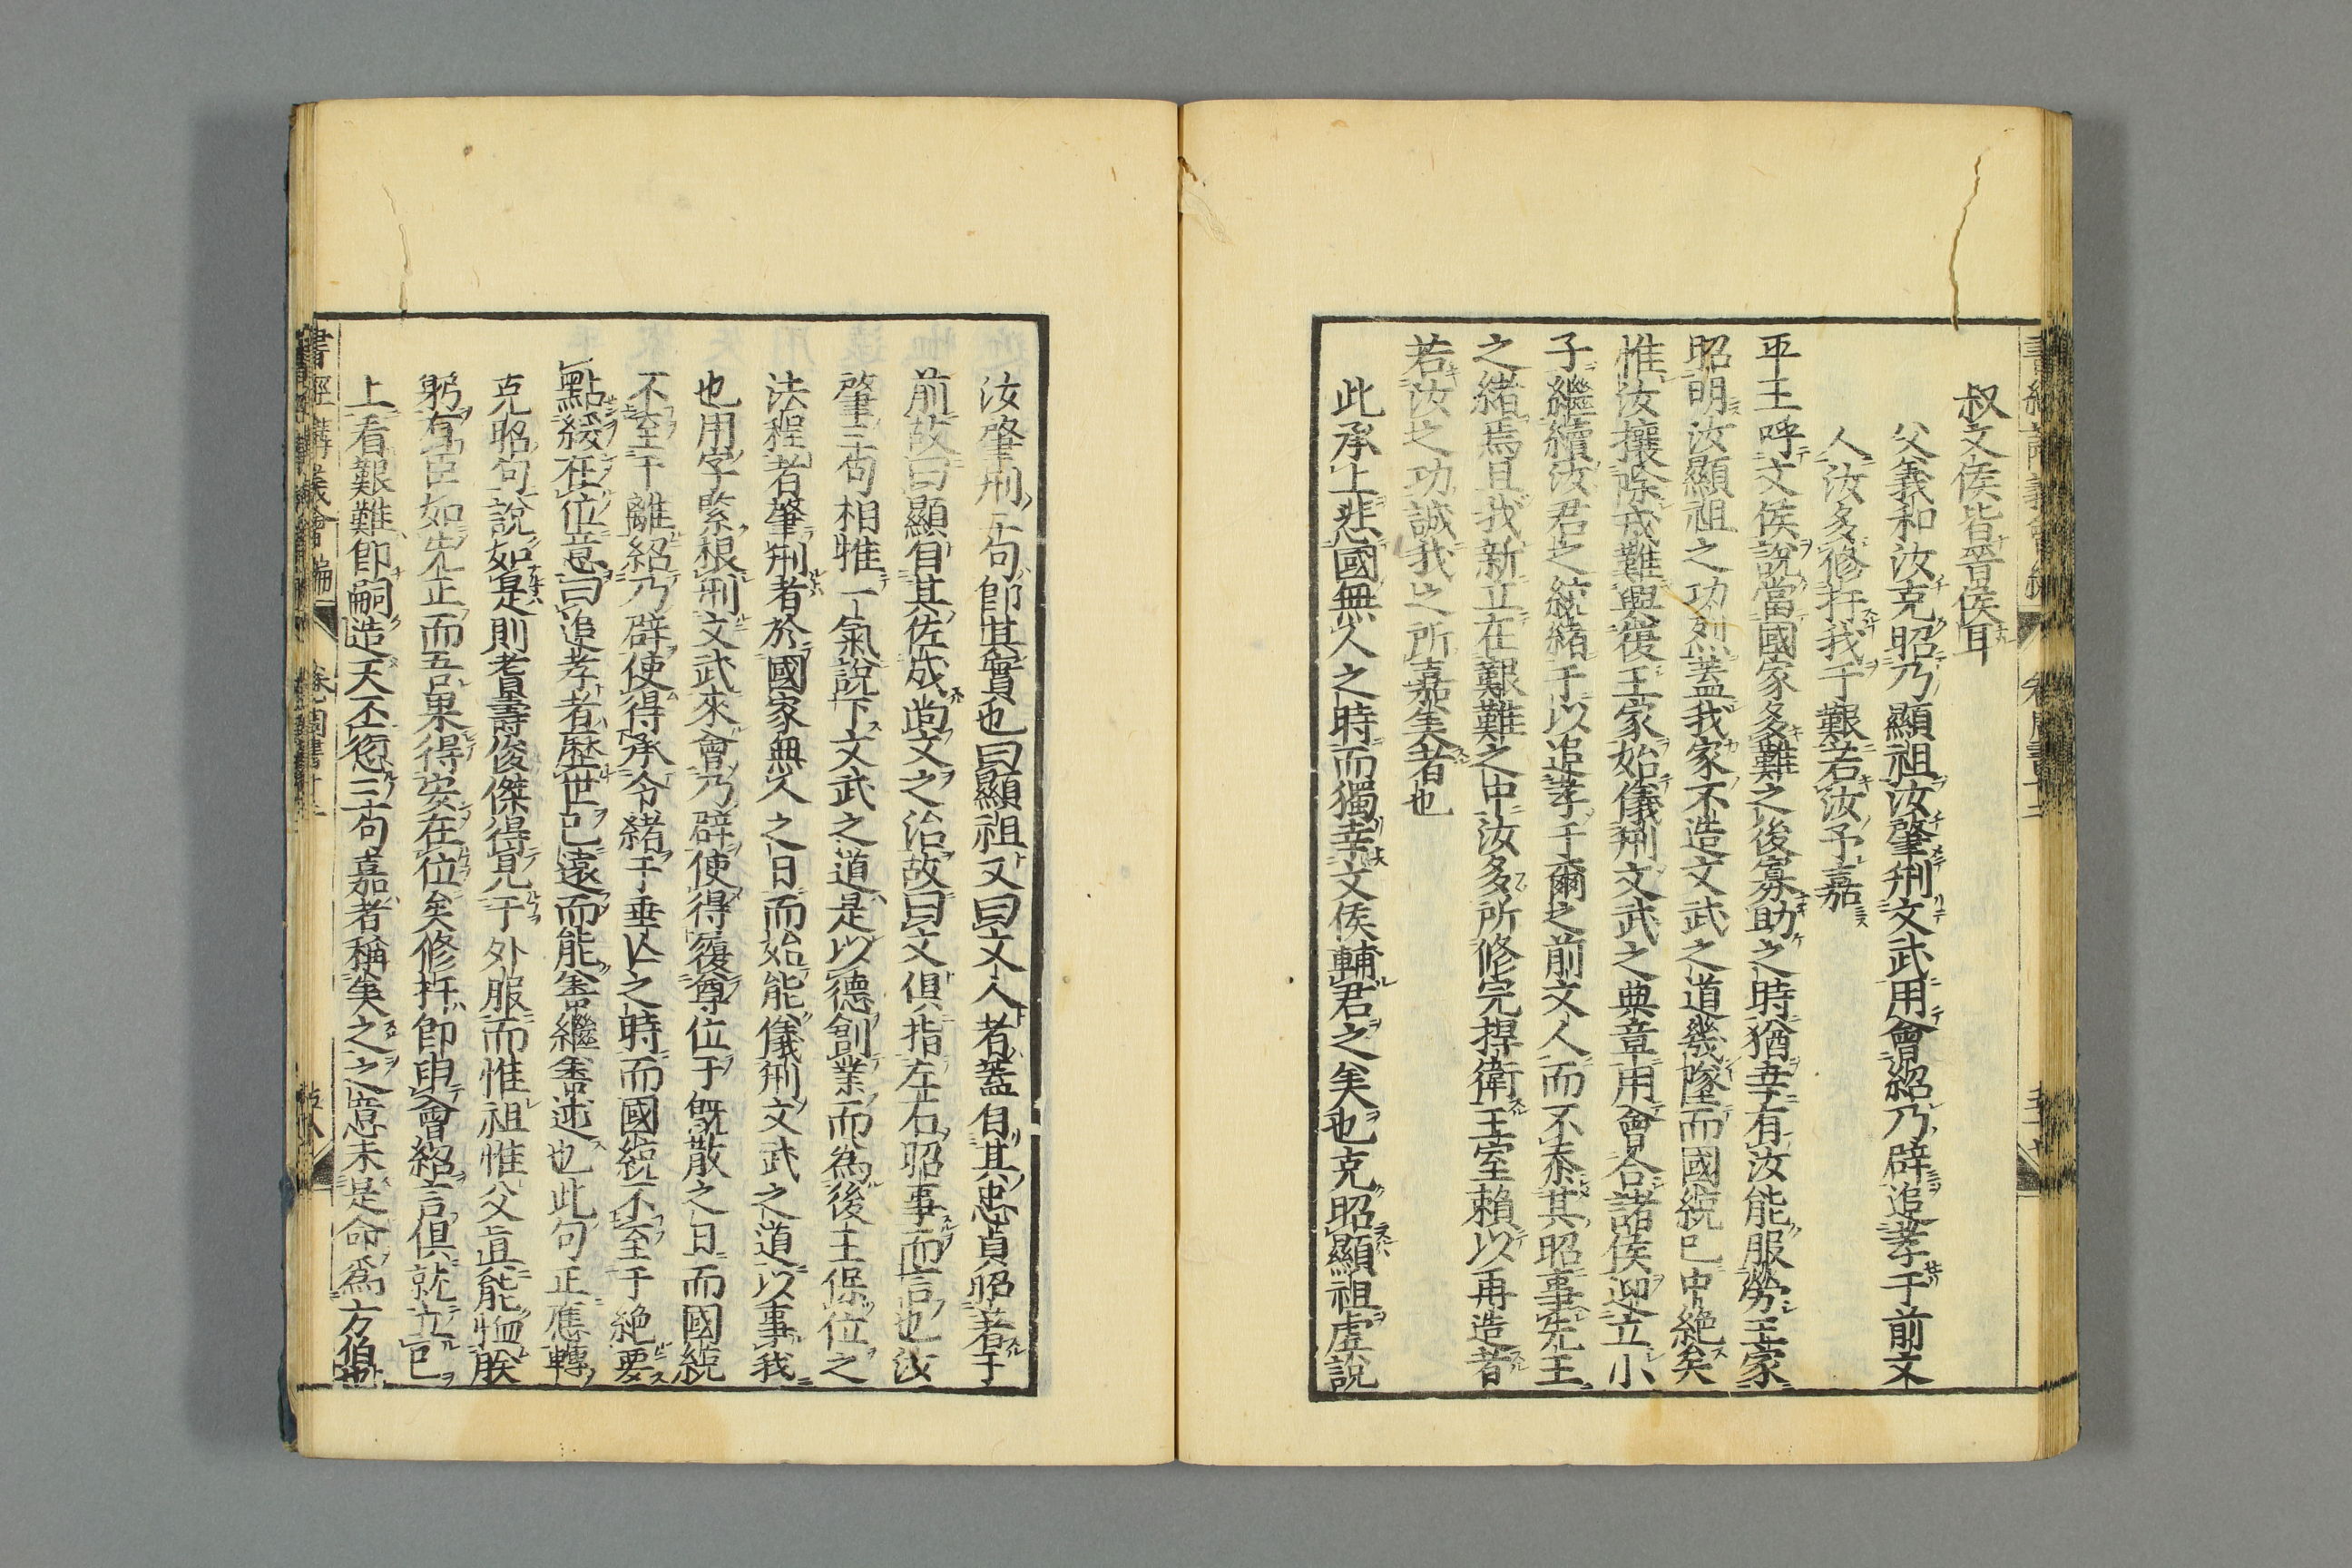 叔文侯皆晉侯耳
父義和汝克昭乃顯祖汝肇刑文武用會紹乃辟追孝于前文
人汝多修扞我于艱若汝予嘉
平王呼文侯說當國家多難之後寡助之時猶幸有汝能服勞王家
昭明汝顯祖之功烈蓋我家不造文武之道幾墜而國統已中絶矣
惟汝攘除戎難興復王家始儀刑文武之典章用會合諸侯迎立小
子繼續汝君之統緒于以追孝于爾之前文人而不忝其昭事先王
之緒焉且我新立在艱難之中汝多所修完捍衛王室賴以再造者
若汝之功誠我之所嘉美者也
此承上悲國無人之時而獨幸文侯輔君之美也克昭顯祖虛說
汝肇刑五句卽其實也曰顯祖又曰文人者蓋自其忠貞昭著于
前故曰顯自其佐成尚文之治故曰文俱指左右昭事而言也汝
肇三句相惟一氣說下文武之道是以德創業而爲後王保位之
法程者肇刑者於國家無人之日而始能儀刑文武之道以事我
也用字緊根刑文武來會乃辟使得復尊位于既散之日而國統
不至于離紹乃辟使得承令緒于垂亾之時而國統不至于絶要
點綴在位意曰追孝者歷世已遠而能善繼善述也此句正應轉
克昭句說如是則耆壽俊傑得見于外服而惟祖惟父眞能恤朕
躬有臣如先正而吾果得安在位矣修扞卽申會紹言俱就立已
上看艱難卽嗣造天丕愆三句嘉者稱美之之意未是命爲方伯也
書經講義會編
卷 周書十二